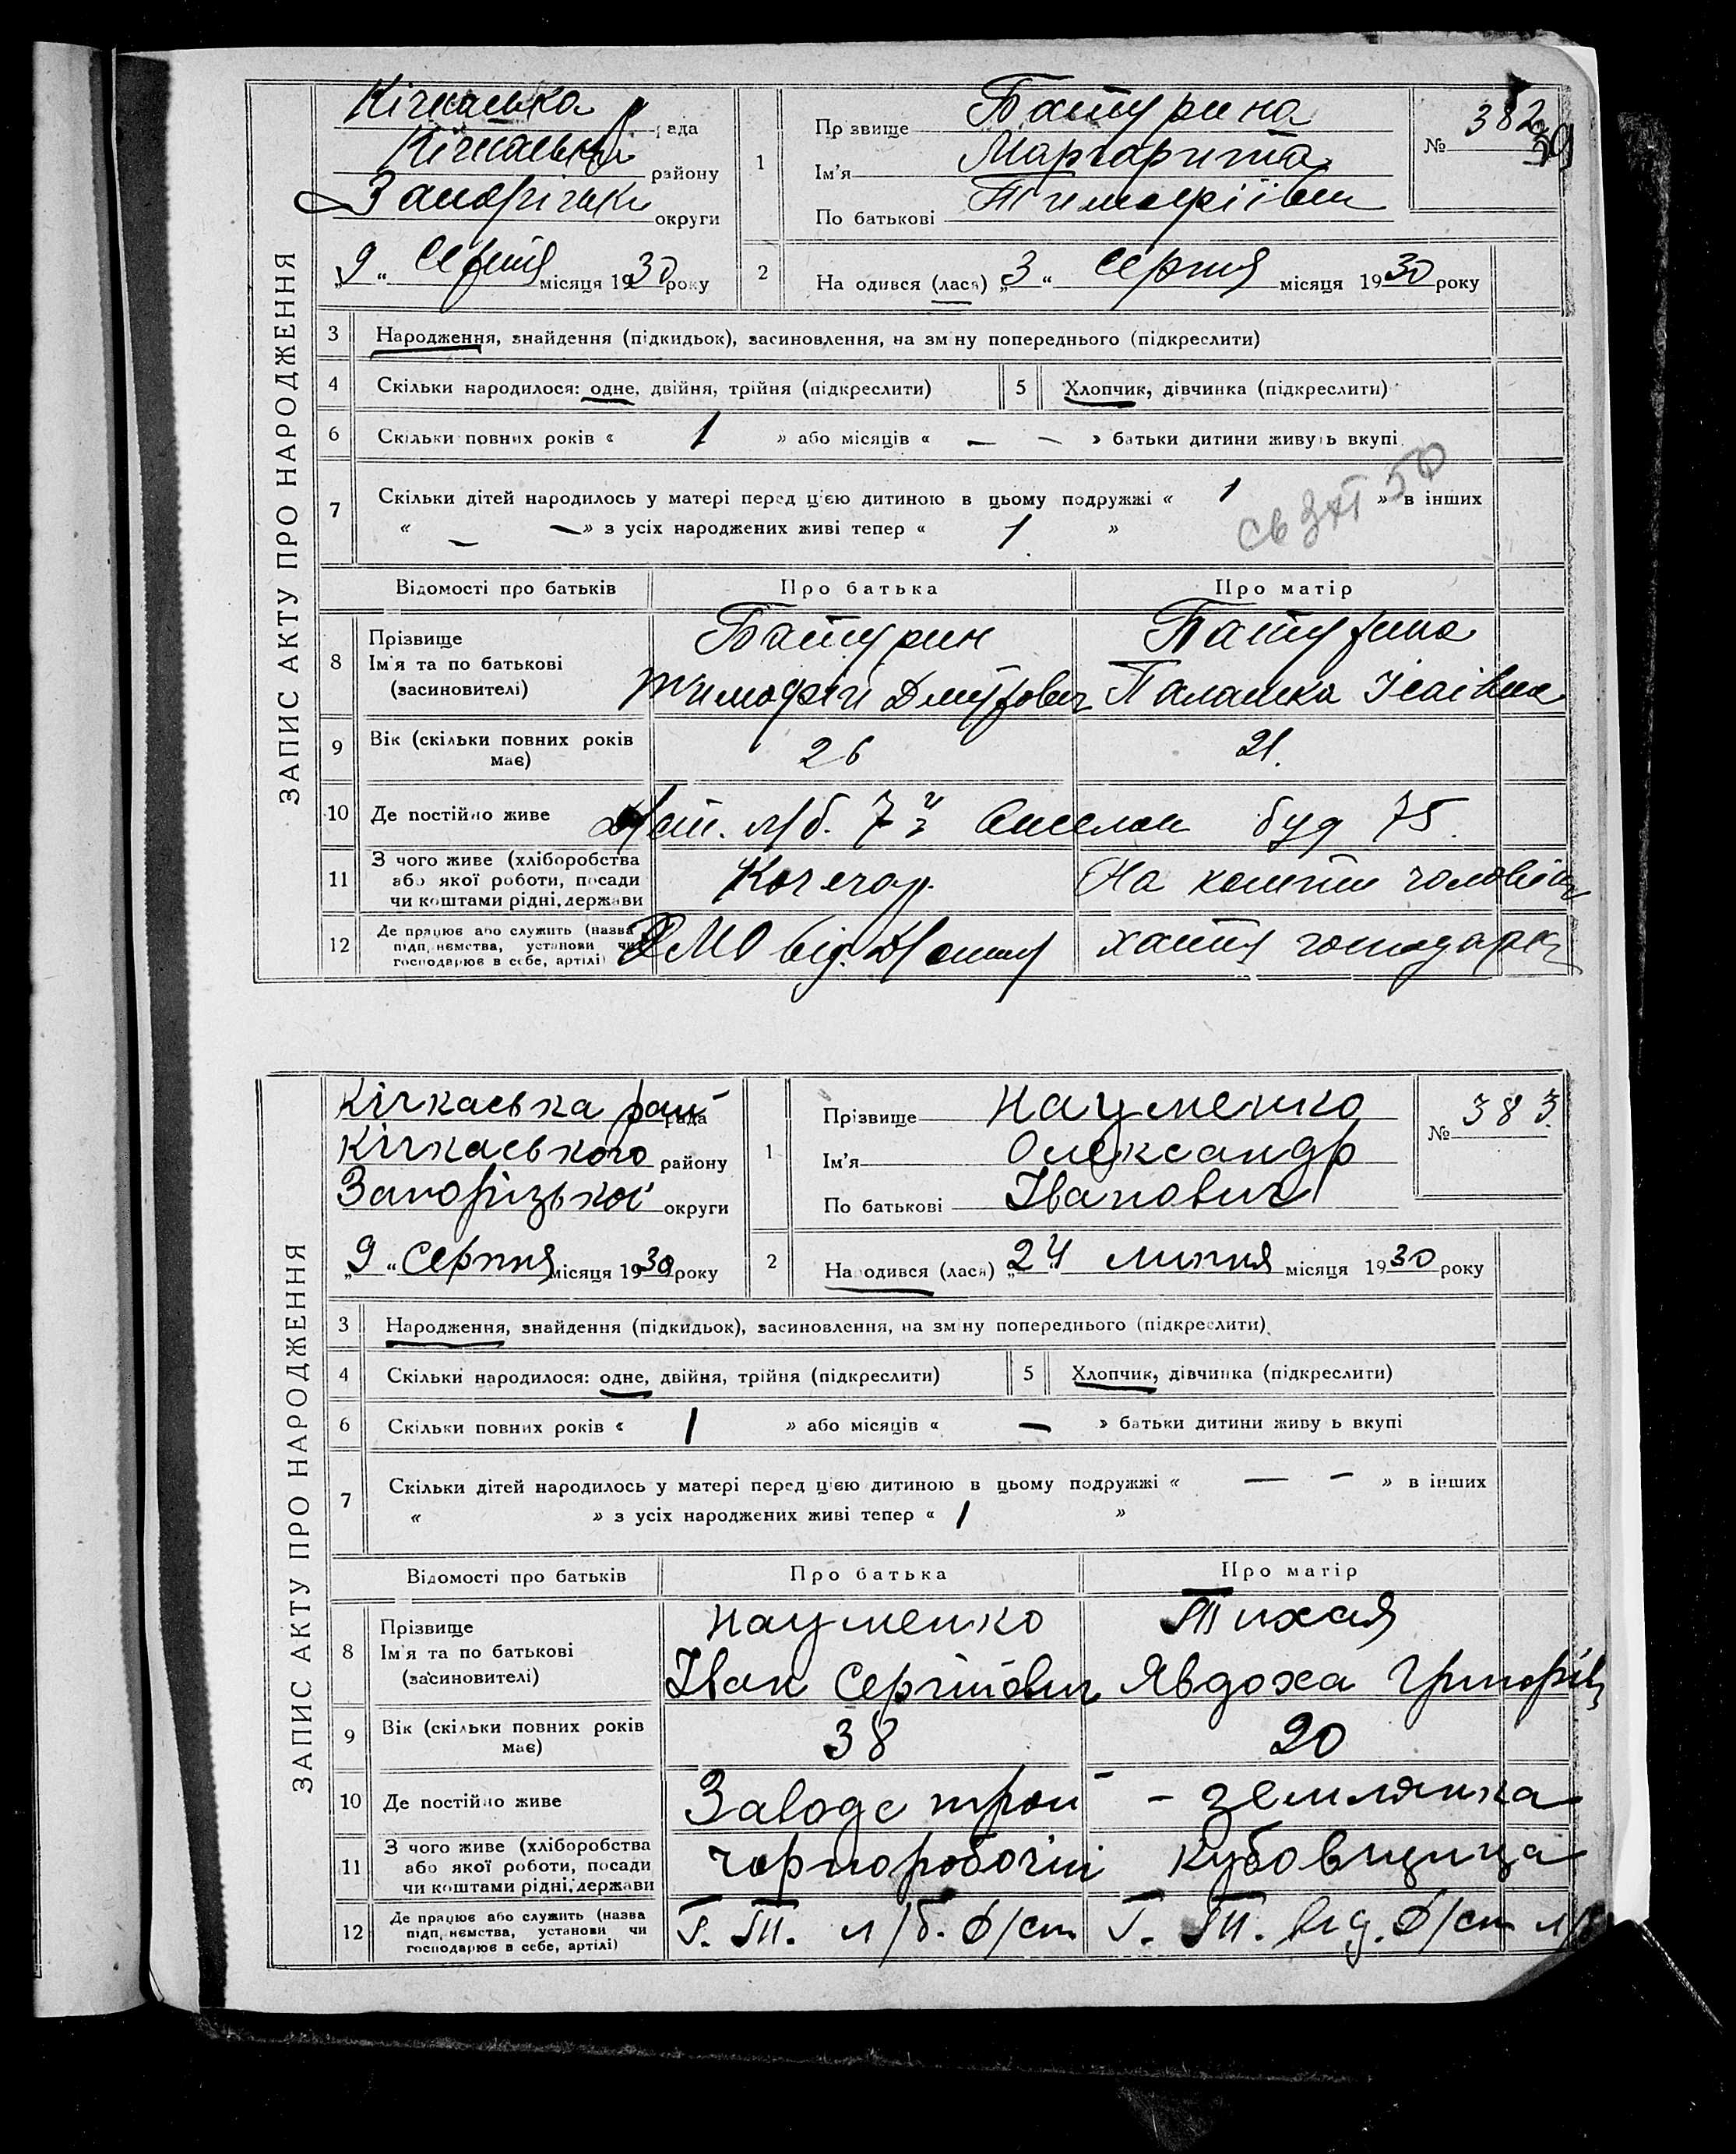 ЗАПИС АКТУ ПРО НАРОДЖЕННЯ
Кічкаська рада
Кічкаськ району
Запоріжськ округи
„9“ Серпня місяця 1930 року
1
Прізвище Батурина
Ім'я Маргарита
По батькові Тимофіївн
№ 382
2
Народився (лася) „3“ серпня місяця 1930 року
3 Народження, знайдення (підкидьок), засиновлення, на зміну попереднього (підкреслити)
4 Скільки народилося: одне, двійня, трійня (підкреслити)
5 Хлопчик, дівчинка (підкреслити)
6 Скільки повних років « 1 » або місяців « — — » батьки дитини живуть вкупі
7 Скільки дітей народилось у матері перед цією дитиною в цьому подружжі « 1 » в інших
« — — » з усіх народжених живі тепер « 1 »
Відомості про батьків Про батька Про матір
8 Прізвище
Ім'я та по батькові
(засиновителі)
Батурин
Тимофій Дмитрович
Батурина
Палашка Ісаівна
9 Вік (скільки повних років має) 26 21.
10 Де постійно живе л/б. 7 буд 75.
11 З чого живе (хліборобства
або якої роботи, посади
чи коштами рідні, держави
Кочегар.
На кошти чоловіка
12 Де працює або служить (назва
підприємства, установи чи
господарює в себе, артілі)
від.
хатня господарка
ЗАПИС АКТУ ПРО НАРОДЖЕННЯ
Кічкаська рай рада
Кічкаського району
Запорізької округи
„9“ Серпня місяця 1930 року
1
Прізвище Науменко
Ім'я Олександр
По батькові Іванович
№ 383.
2
Народився (лася) „24“ липня місяця 1930 року
3 Народження, знайдення (підкидьок), засиновлення, на зміну попереднього (підкреслити)
4 Скільки народилося: одне, двійня, трійня (підкреслити)
5 Хлопчик, дівчинка (підкреслити)
6 Скільки повних років « 1 » або місяців « — » батьки дитини живу ь вкупі
7 Скільки дітей народилось у матері перед цією дитиною в цьому подружжі « — — » в інших
« » з усіх народжених живі тепер « 1 »
Відомості про батьків Про батька Про матір
8 Прізвище
Ім'я та по батькові
(засиновителі)
Науменко
Іван Сергійович
Тихая
Явдоха Григорівн
9 Вік (скільки повних років має) 38 20
10 Де постійно живе Заводстрой - землянка
11 З чого живе (хліборобства
або якої роботи, посади
чи коштами рідні, держави
чорноробочий
кубовщица
12 Де працює або служить (назва
підприємства, установи чи
господарює в себе, артілі)
Г. Ш. л/б. ф/ст
Г. Ш. від. ф/ст л/б